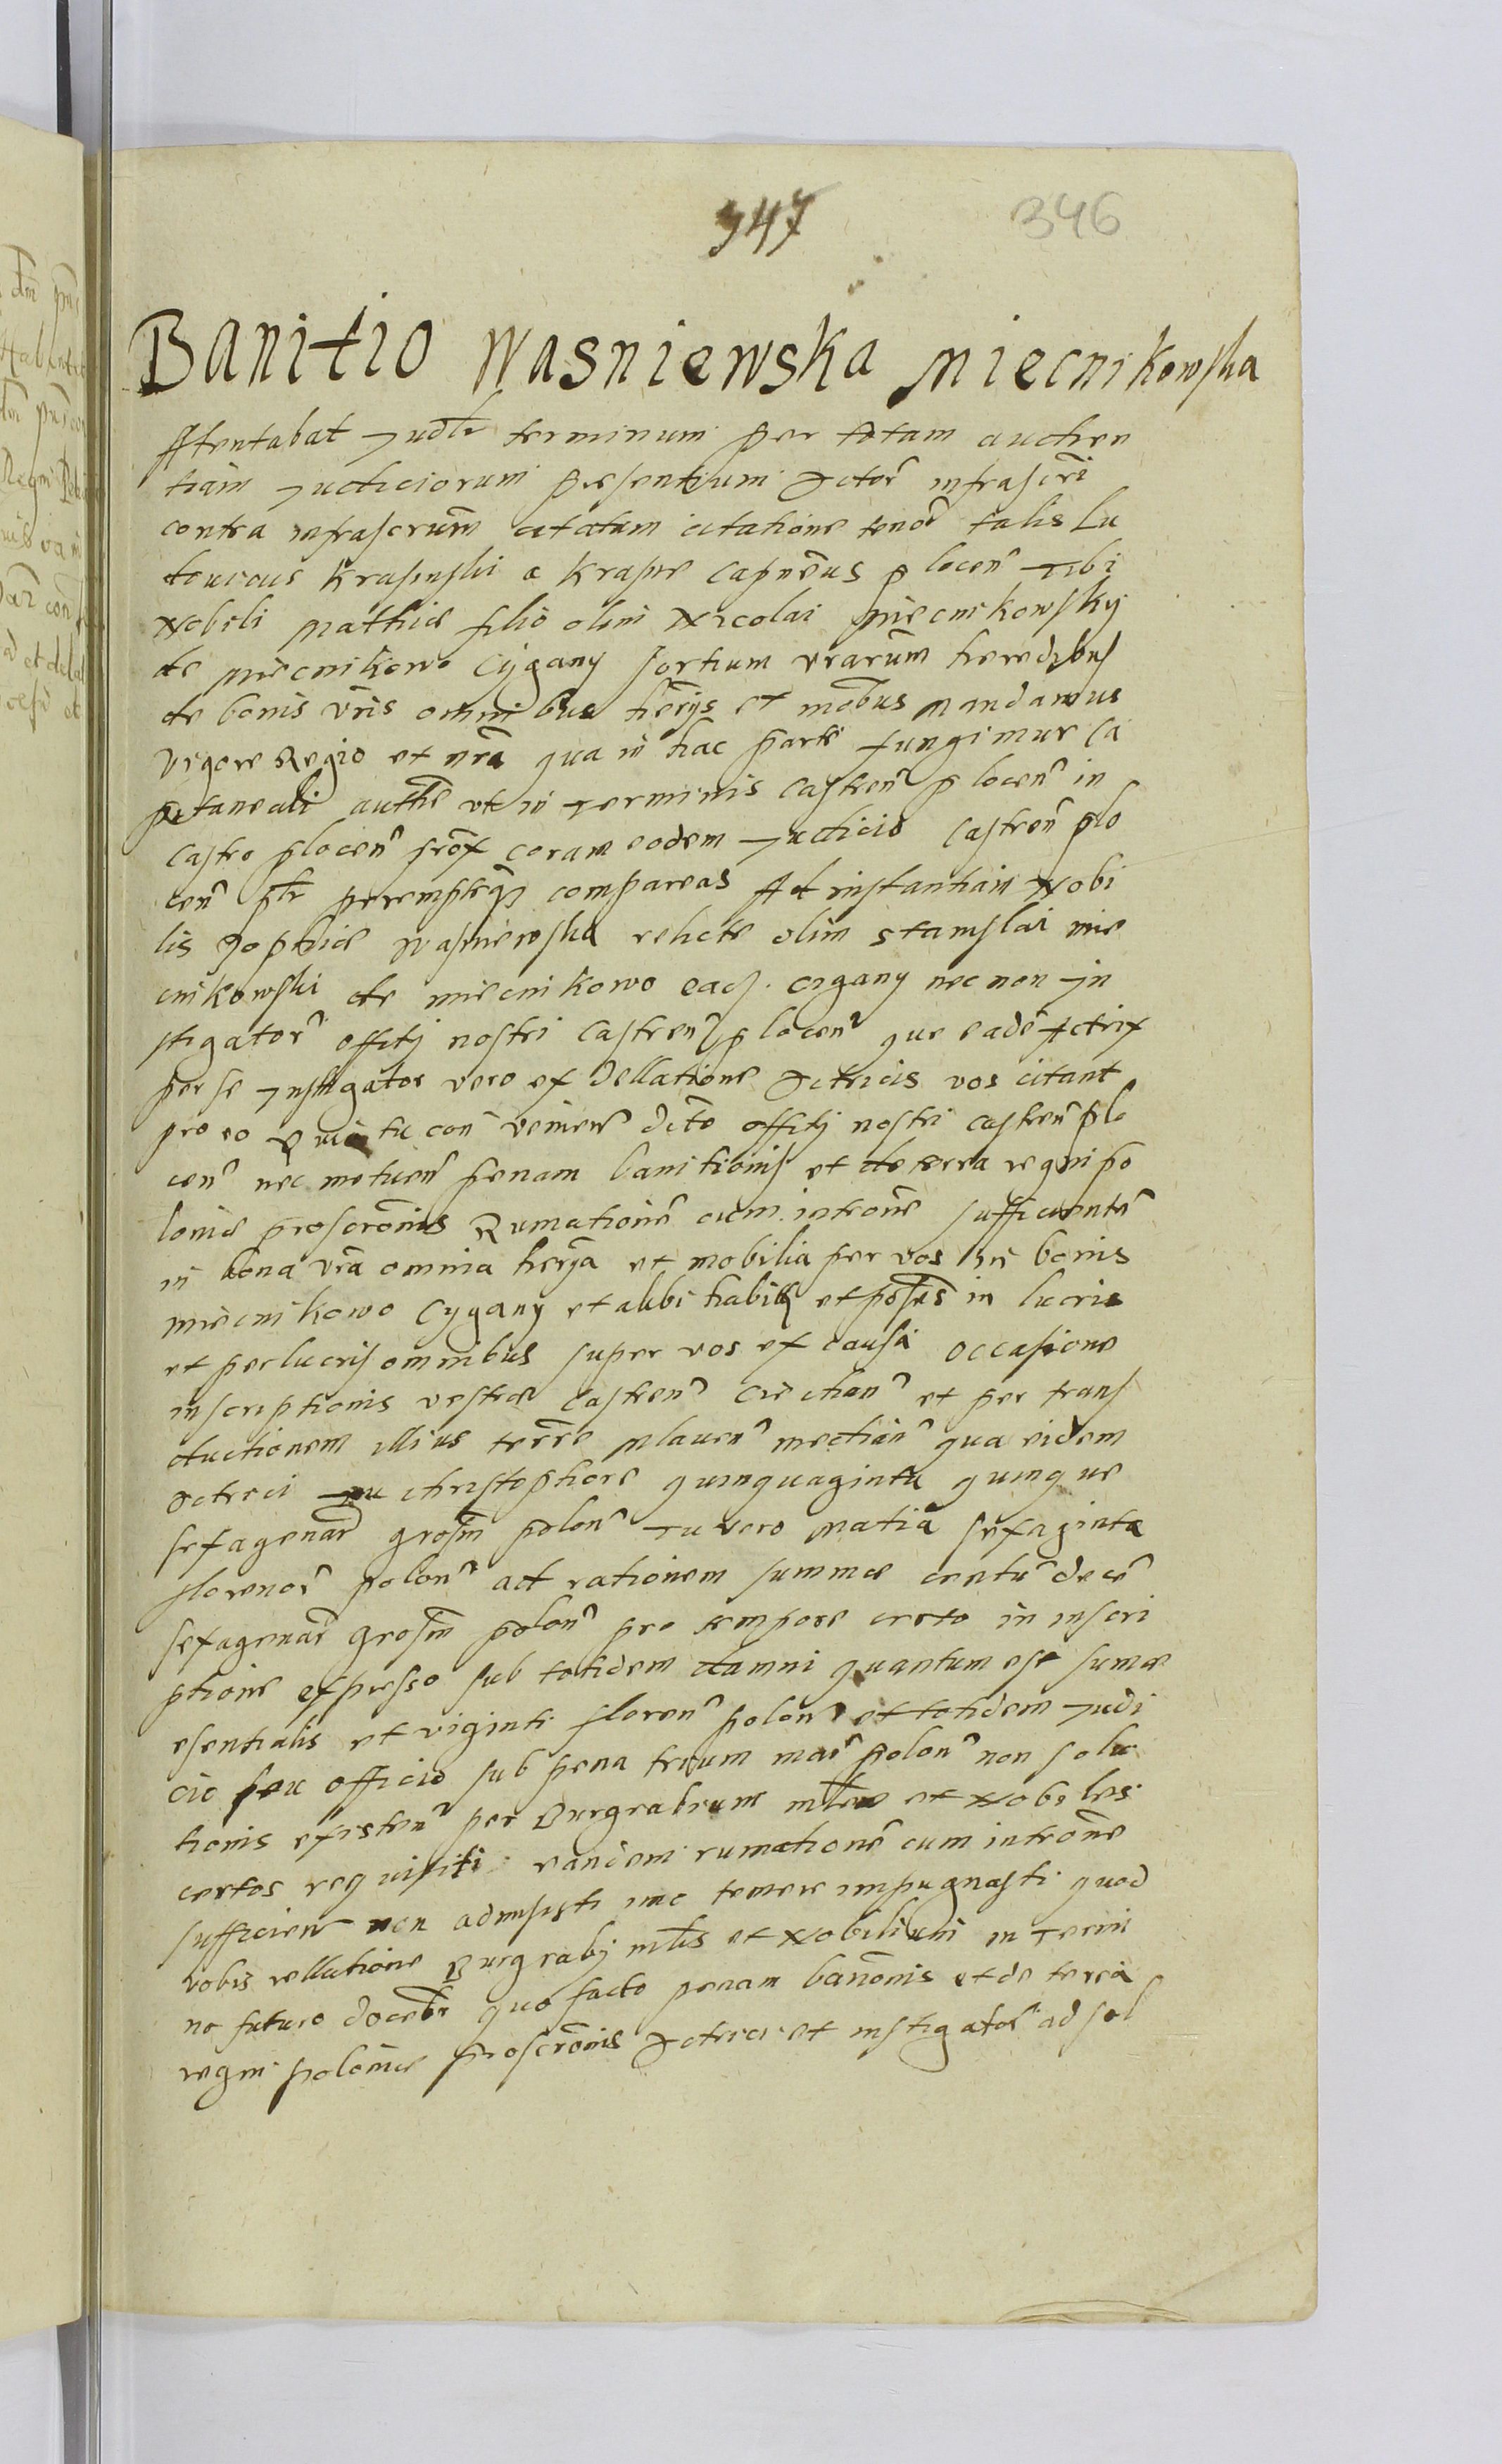 347 346
Banitio Wasniewska Miecnikowska
Attentabat Judlr terminum per totam audien
tiam Judiciorum presentium Actor infrascri
contra infrascrum citatum citatione tenor talis Lu
Krasinski a Krasne Capneus plocen Tibi
Nobili Mathiæ filio olim Nicolai Miecnikowsky
de Miecnikowo Cygany sortium vrarum heredibus
de bonis vris omnibus herijs et mobus Mandamus
vigore Regio et nra qua in hac parte fungimur Ca
pitaneali authe vt in Terminis Castren plocen in
Castro plocen prox coram eodem Judicio Castren plo
cen ptr peremptq compareas Ad instantiam Nobi
lis Zophiæ Wasniewska relictæ olim Stanislai Mie
cnikowski de Miecnikowo eads. Cigany nec non In
stigator offitij nostri Castren plocen que eadē Actrix
per se Instigator vero ex dellatione Actricis vos citant
pro eo Quia tu con venien dicto offitij nostri castren plo
cen nec metuen penam banitionis et de terra regni Po
loniæ proscronis Rumationē cum introne sufficientē
in bona vra omnia herija et mobilia per vos in bonis
Miecnikowo Cygany et alibi habita et posses in lucris
et perlucris omnibus super vos ex causa occasione
inscriptionis vestræ Castren Ciechan et per trans
ductionem illius terre Mlaven median qua eidem
Actrici tu Christophore quinquaginta quinque
sexagenar grosm polon Tu vero Matia sexaginta
florenor polon ad rationem summæ centū decē
sexagenar grosm polon pro tempore certo in inscri
ptione expresso sub totidem damni quantum est sumæ
esentialis et viginti floren polon et totidem Judi
cio seu officio sub pena trium mar polon non solu
tionis existen per Burgrabium et Nobiles
certos requisiti eandem rumationē cum introne
sufficien non admisisti imo temere impugnasti quod
vobis rellatione Burgrabij mtlis et Nobilium in Termi
no futuro docebr quo facto penam banonis et de terra
regni poloniæ proscronis Actrici et instigator ad sol